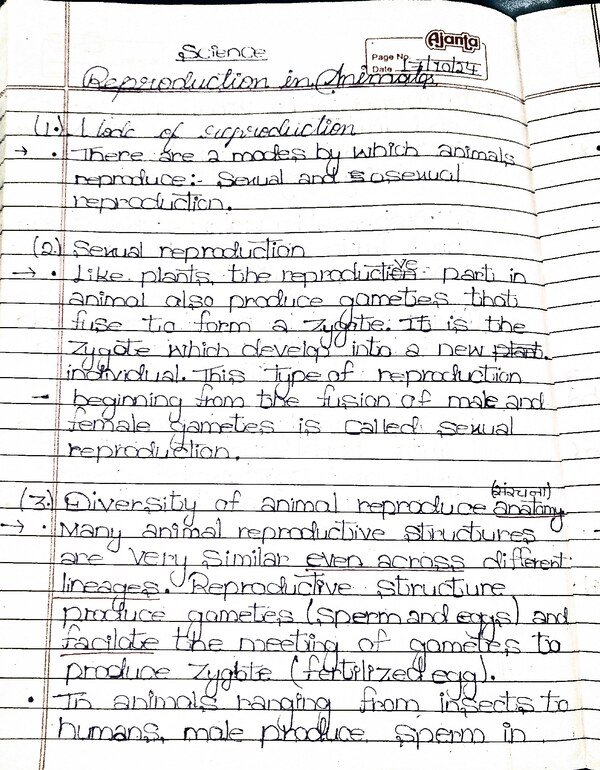 Science
Ajanta
Page No.
Date 17/10/24
Reproduction in Animals
(1.) Mode of reproduction
→ • There are 2 modes by which animals
reproduce:- Sexual and asexual
reproduction.
(2.) Sexual reproduction
→ • Like plants, the reproductive part in
animal also produce gameties that
fuse to form a zygote. It is the
zygote which develop into a new plant.
individual. This type of reproduction
- beginning from the fusion of male and
female gametes is called sexual
reproduction.
(संरचना)
(3.) Diversity of animal reproduce anatomy
→ • Many animal reproductive structures
are very similar even across different
lineages. Reproductive structure
produce gametes (sperm and eggs) and
facilate the meeting of gametes to
produce zygote (fertilized egg).
• In animals ranging from insects to
humans, male produce sperm in